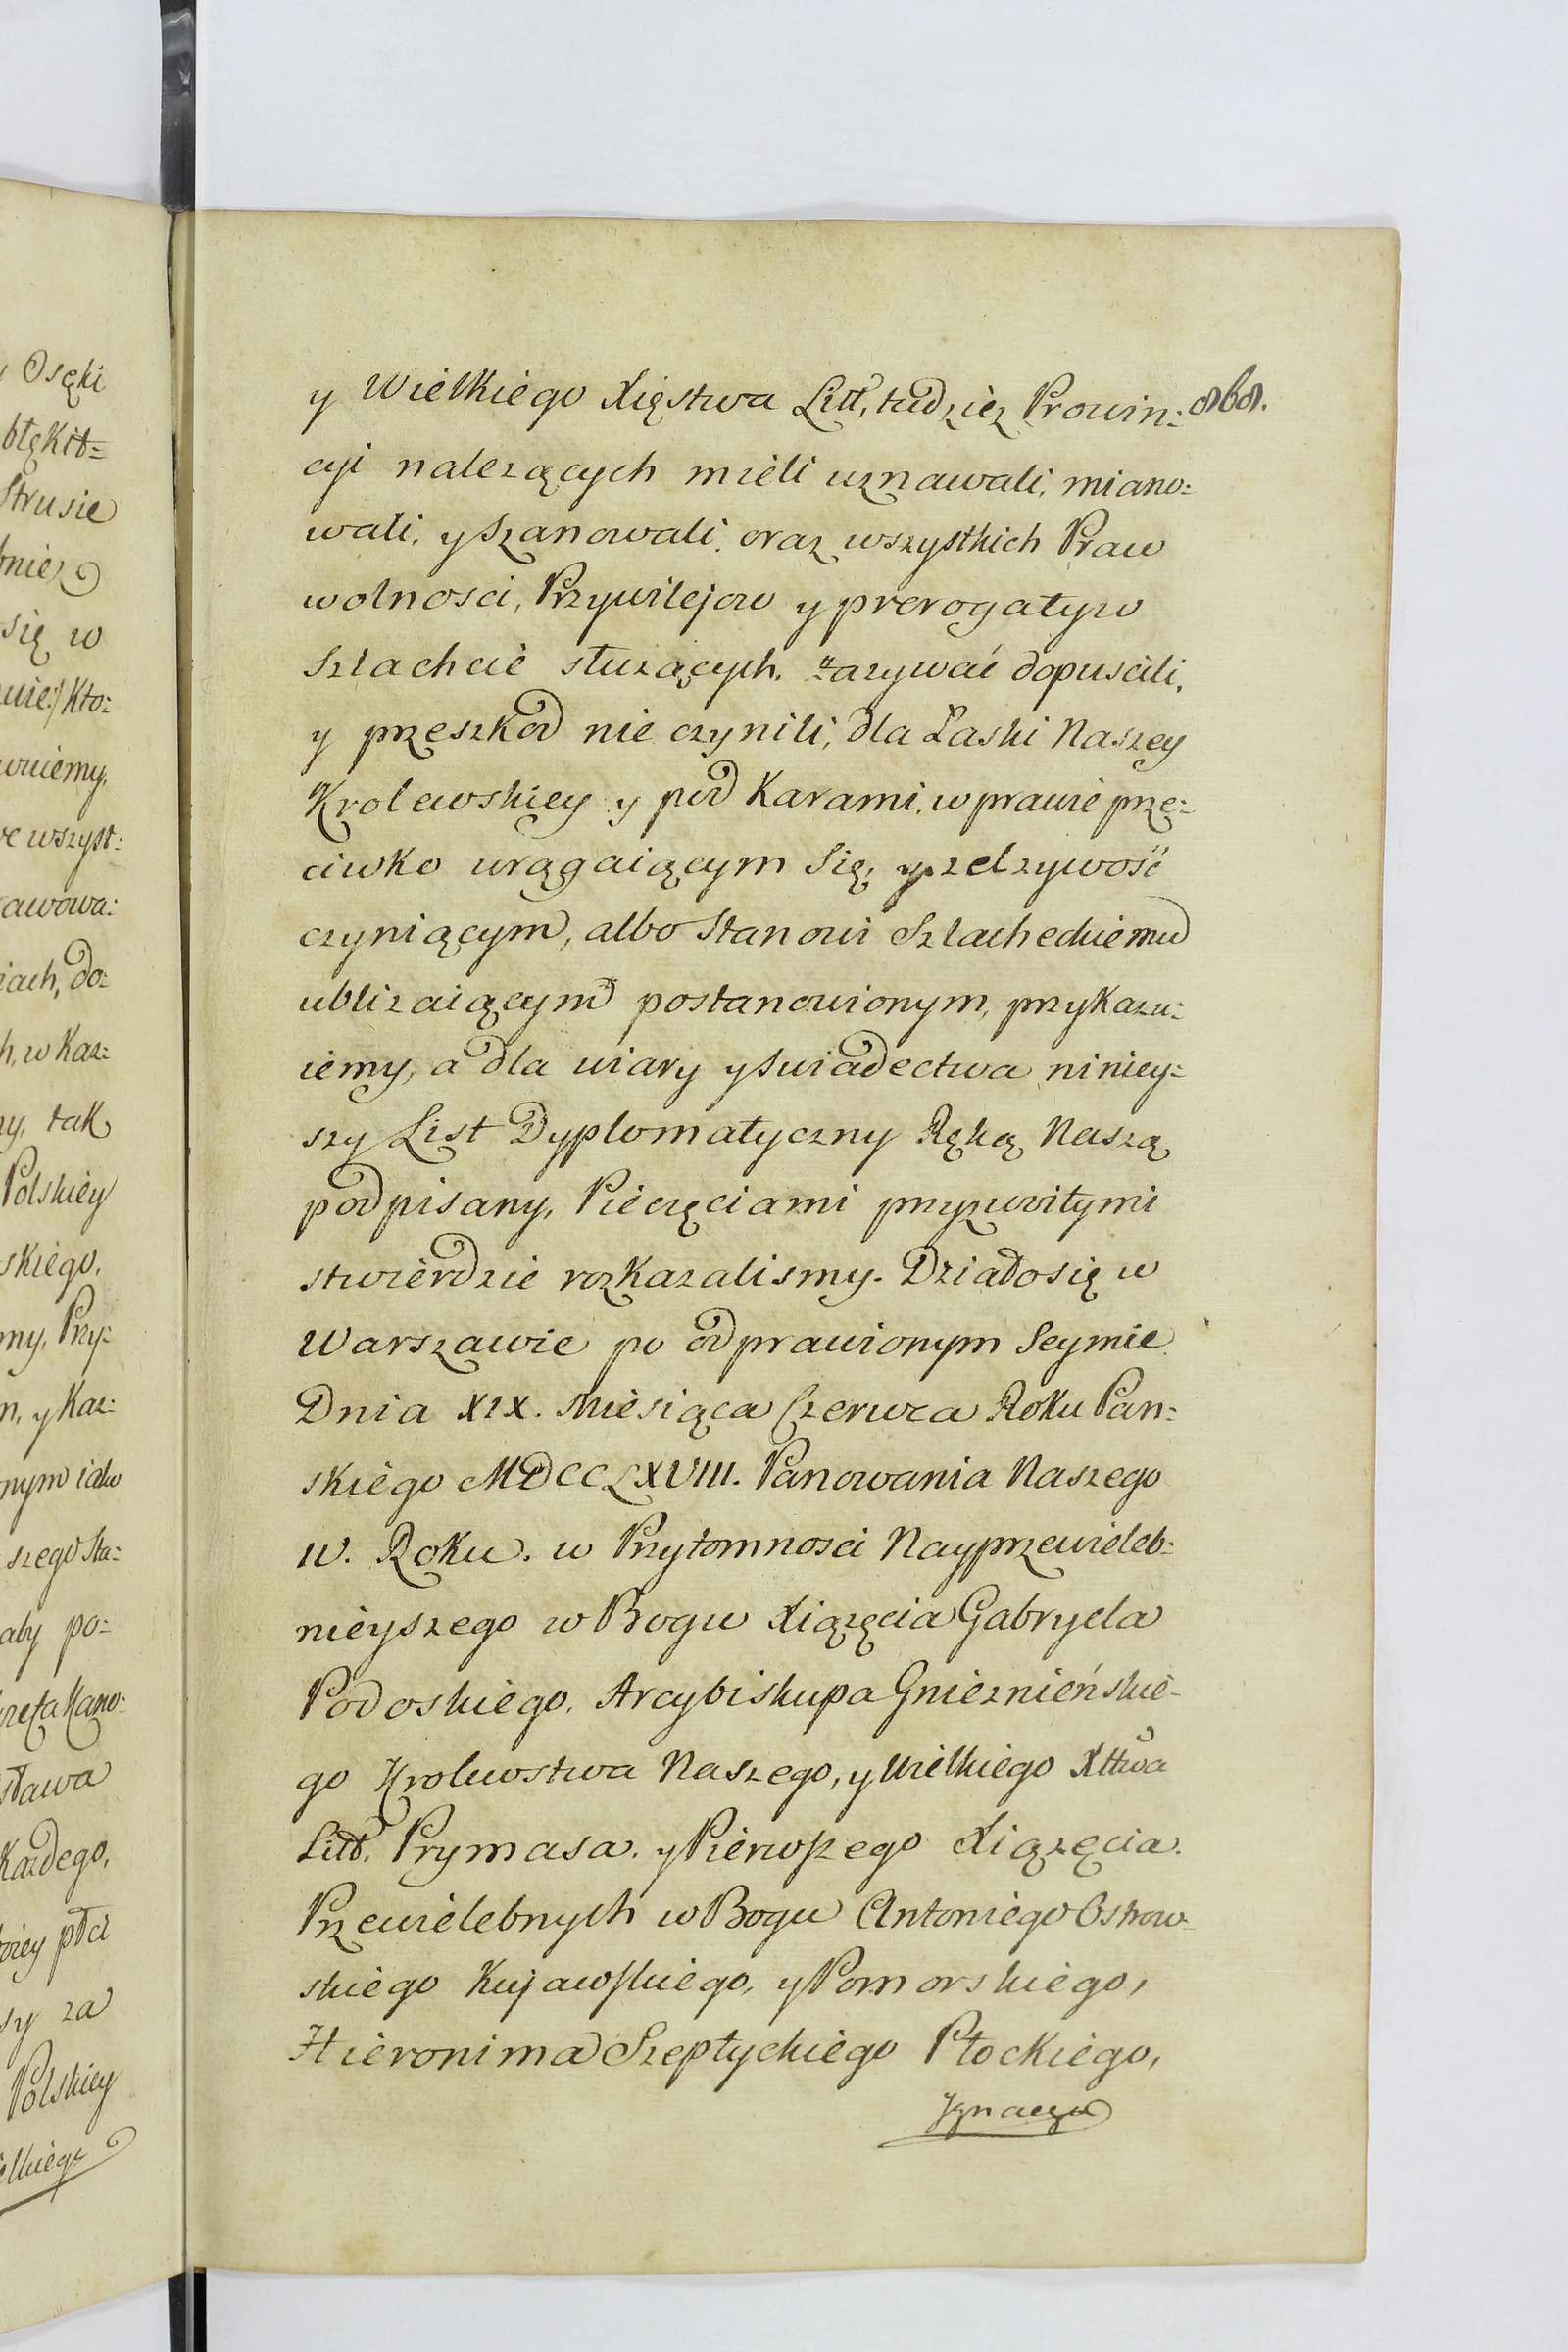 y Wielkiego Xięstwa Litt, tudziez Prowin:
cyi nalezących mieli uznawali, miano:
wali, y Szanowali, oraz wszystkich Praw
wolnosci, Przywilejow y prerogatyw
Szlachcie słuzących, zazywać dopuscili,
y przeszkod nie czynili, dla Łaski Naszey
Krolewskiey y pod Karami, w prawie prze:
ciwko urągaiącym Się, y zelzywość
czyniącym, albo Stanowi Szlacheckiemu
ublizaiącym postanowionym, przykazu:
iemy, a dla wiary y Swiadectwa niniey:
szy List Dyplomatyczny Ręką Naszą
podpisany, Pieczęciami przyzwoitymi
stwierdzic rozkazalismy. Działo się w
Warszawie po odprawionym Seymie
Dnia XIX. Miesiąca Czerwca Roku Pan:
skiego MDCCLXVIII. Panowania Naszego
IV. Roku. w Przytomnosci Nayprzewieleb:
nieyszego w Bogu Xiązęcia Gabryela
Podoskiego, Arcybiskupa Gnieznieńskie-
go Krolewstwa Naszego, y Wielkiego Xttwa
Litt. Prymasa. y Pierwszego Xiązęcia.
Przewielebnych w Bogu Antoniego Ostrow-
skiego Kujawskiego, y Pomorskiego,
Hieronima Szeptyckiego Płockiego,
Ignacego
Osęki
błękit=
Strusie
się w
Kto:
wniemy,
wszyst:
do:
w Kaz:
tak
Polskiey
skiego,
Przy:
y Kaz:
szego Sta:
aby po:
Kazdego,
płci
za
Polskiey